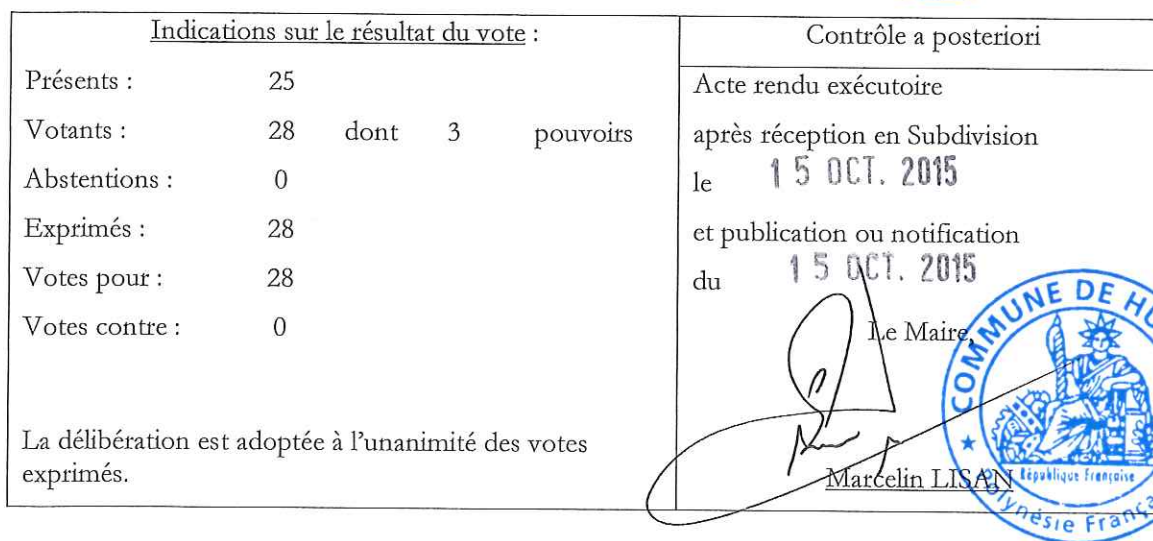 Indications sur le résultat du vote :
Présents : 25
Votants : 28 dont 3 pouvoirs
Abstentions : 0
Exprimés : 28
Votes pour : 28
Votes contre : 0
La délibération est adoptée à l'unanimité des votes
exprimés.
Contrôle a posteriori
Acte rendu exécutoire
après réception en Subdivision
le 15 OCT. 2015
et publication ou notification
du 15 OCT. 2015
Le Maire,
Marcelin LISAN
COMMUNE DE HU
République Française
Polynésie França